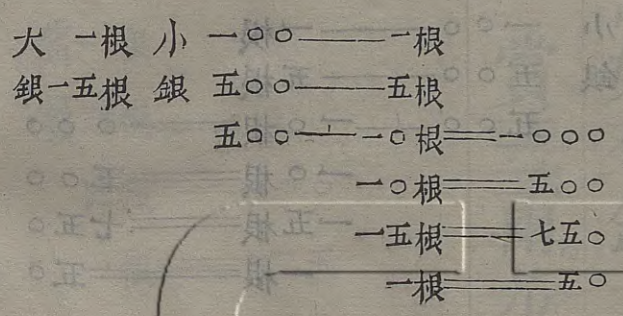 大 一根 小 一〇〇——一根
銀 一五根 銀 五〇〇——五根
五〇〇——一〇根══一〇〇〇
一〇根══五〇〇
一五根══七五〇
一根══五〇